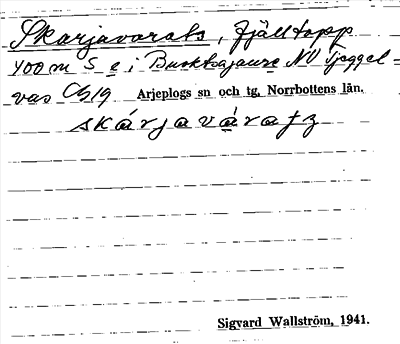 Skarjavarats, fjälltopp
400 m S e i Buoktsajaure NV Tjeggel=
vas Cb19 Arjeplogs sn och tg, Norrbottens län.
skárjavárạtz
Sigvard Wallström, 1941.